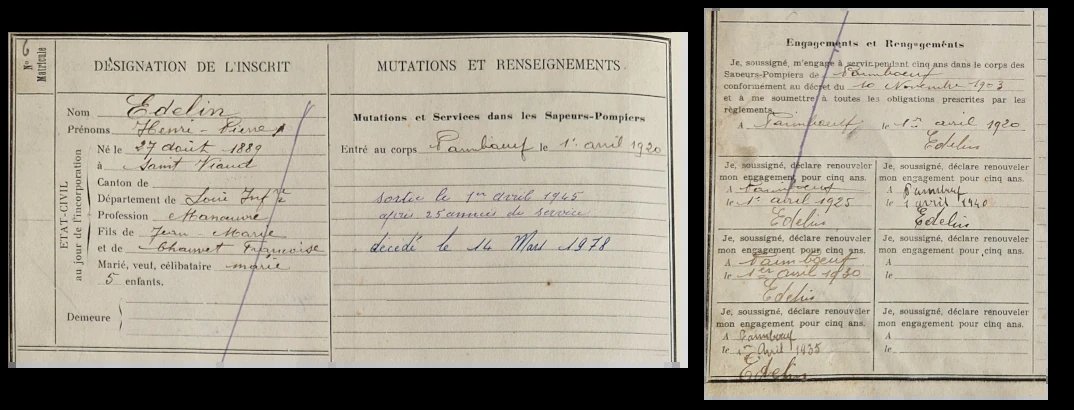 N° 6
Matricule
DÉSIGNATION DE L'INSCRIT
ETAT-CIVIL
au jour de l'incorporation
Nom Edelin
Prénoms Henri - Pierre
Né le 27 août 1889
à Saint Viaud
Canton de
Département de Loire Infre
Profession Manœuvre
Fils de Jean - Marie
et de Chauvet Françoise
Marié, veuf, célibataire marié
5 enfants.
Demeure
MUTATIONS ET RENSEIGNEMENTS
Mutations et Services dans les Sapeurs-Pompiers
Entré au corps Paimbœuf le 1er avril 1920
sortie le 1er avril 1945
après 25 années de service
décédé le 14 Mars 1978
Engagements et Rengagements
Je, soussigné, m'engage à servir pendant cinq ans dans le corps des
Sapeurs-Pompiers de Paimbœuf
conformément au décret du 10 Novembre 1903
et à me soumettre à toutes les obligations prescrites par les
règlements.
A Paimbœuf le 1er avril 1920
Edelin
Je, soussigné, déclare renouveler
mon engagement pour cinq ans.
A Paimbœuf
le 1er avril 1925
Edelin
Je, soussigné, déclare renouveler
mon engagement pour cinq ans.
A Paimbœuf
le 1er avril 1930
Edelin
Je, soussigné, déclare renouveler
mon engagement pour cinq ans.
A Paimbœuf
le 1er Avril 1935
Edelin
Je, soussigné, déclare renouveler
mon engagement pour cinq ans.
A Paimbœuf
le 1 avril 1940
Edelin
Je, soussigné, déclare renouveler
mon engagement pour cinq ans.
A
le
Je, soussigné, déclare renouveler
mon engagement pour cinq ans.
A
le